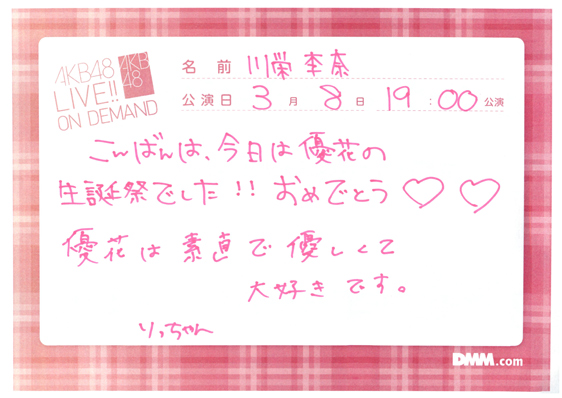 AKB48
LIVE!!
ON DEMAND
AKB
48
名前 川栄李奈
公演日 3月 8日 19:00公演
こんばんは、今日は優花の
生誕祭でした!! おめでとう♡♡
優花は素直で優しくて
大好きです。
りっちゃん
DMM.com